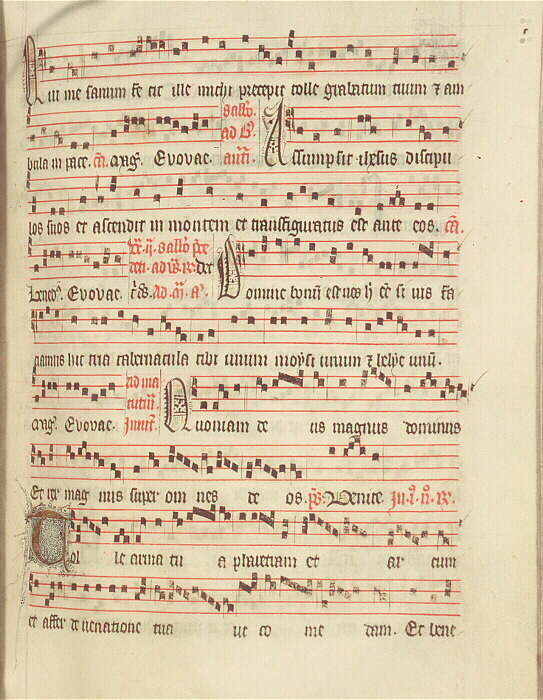 Qui me sanum fecit ille michi precepit tolle grabatum tuum ⁊ am
bula in pace. Evovae. Sabbo. ad Assumpsit ihesus discipu
los suos et ascendit in montem et transfiguratus est ante eos.
Evovae. Ad Domine bonum est nos hic esse si vis fa
ciamus hic tria tabernacula tibi unum moysi unum ⁊ helye unum.
Evovae. ad ma tutin Invit. Quoniam deus magnus dominus
Et rex mag nus super om nes de os. ps. Venite.
Tol le arma tu a pharetram et ar cum
et affer de venatione tua ut co me dam. Et bene